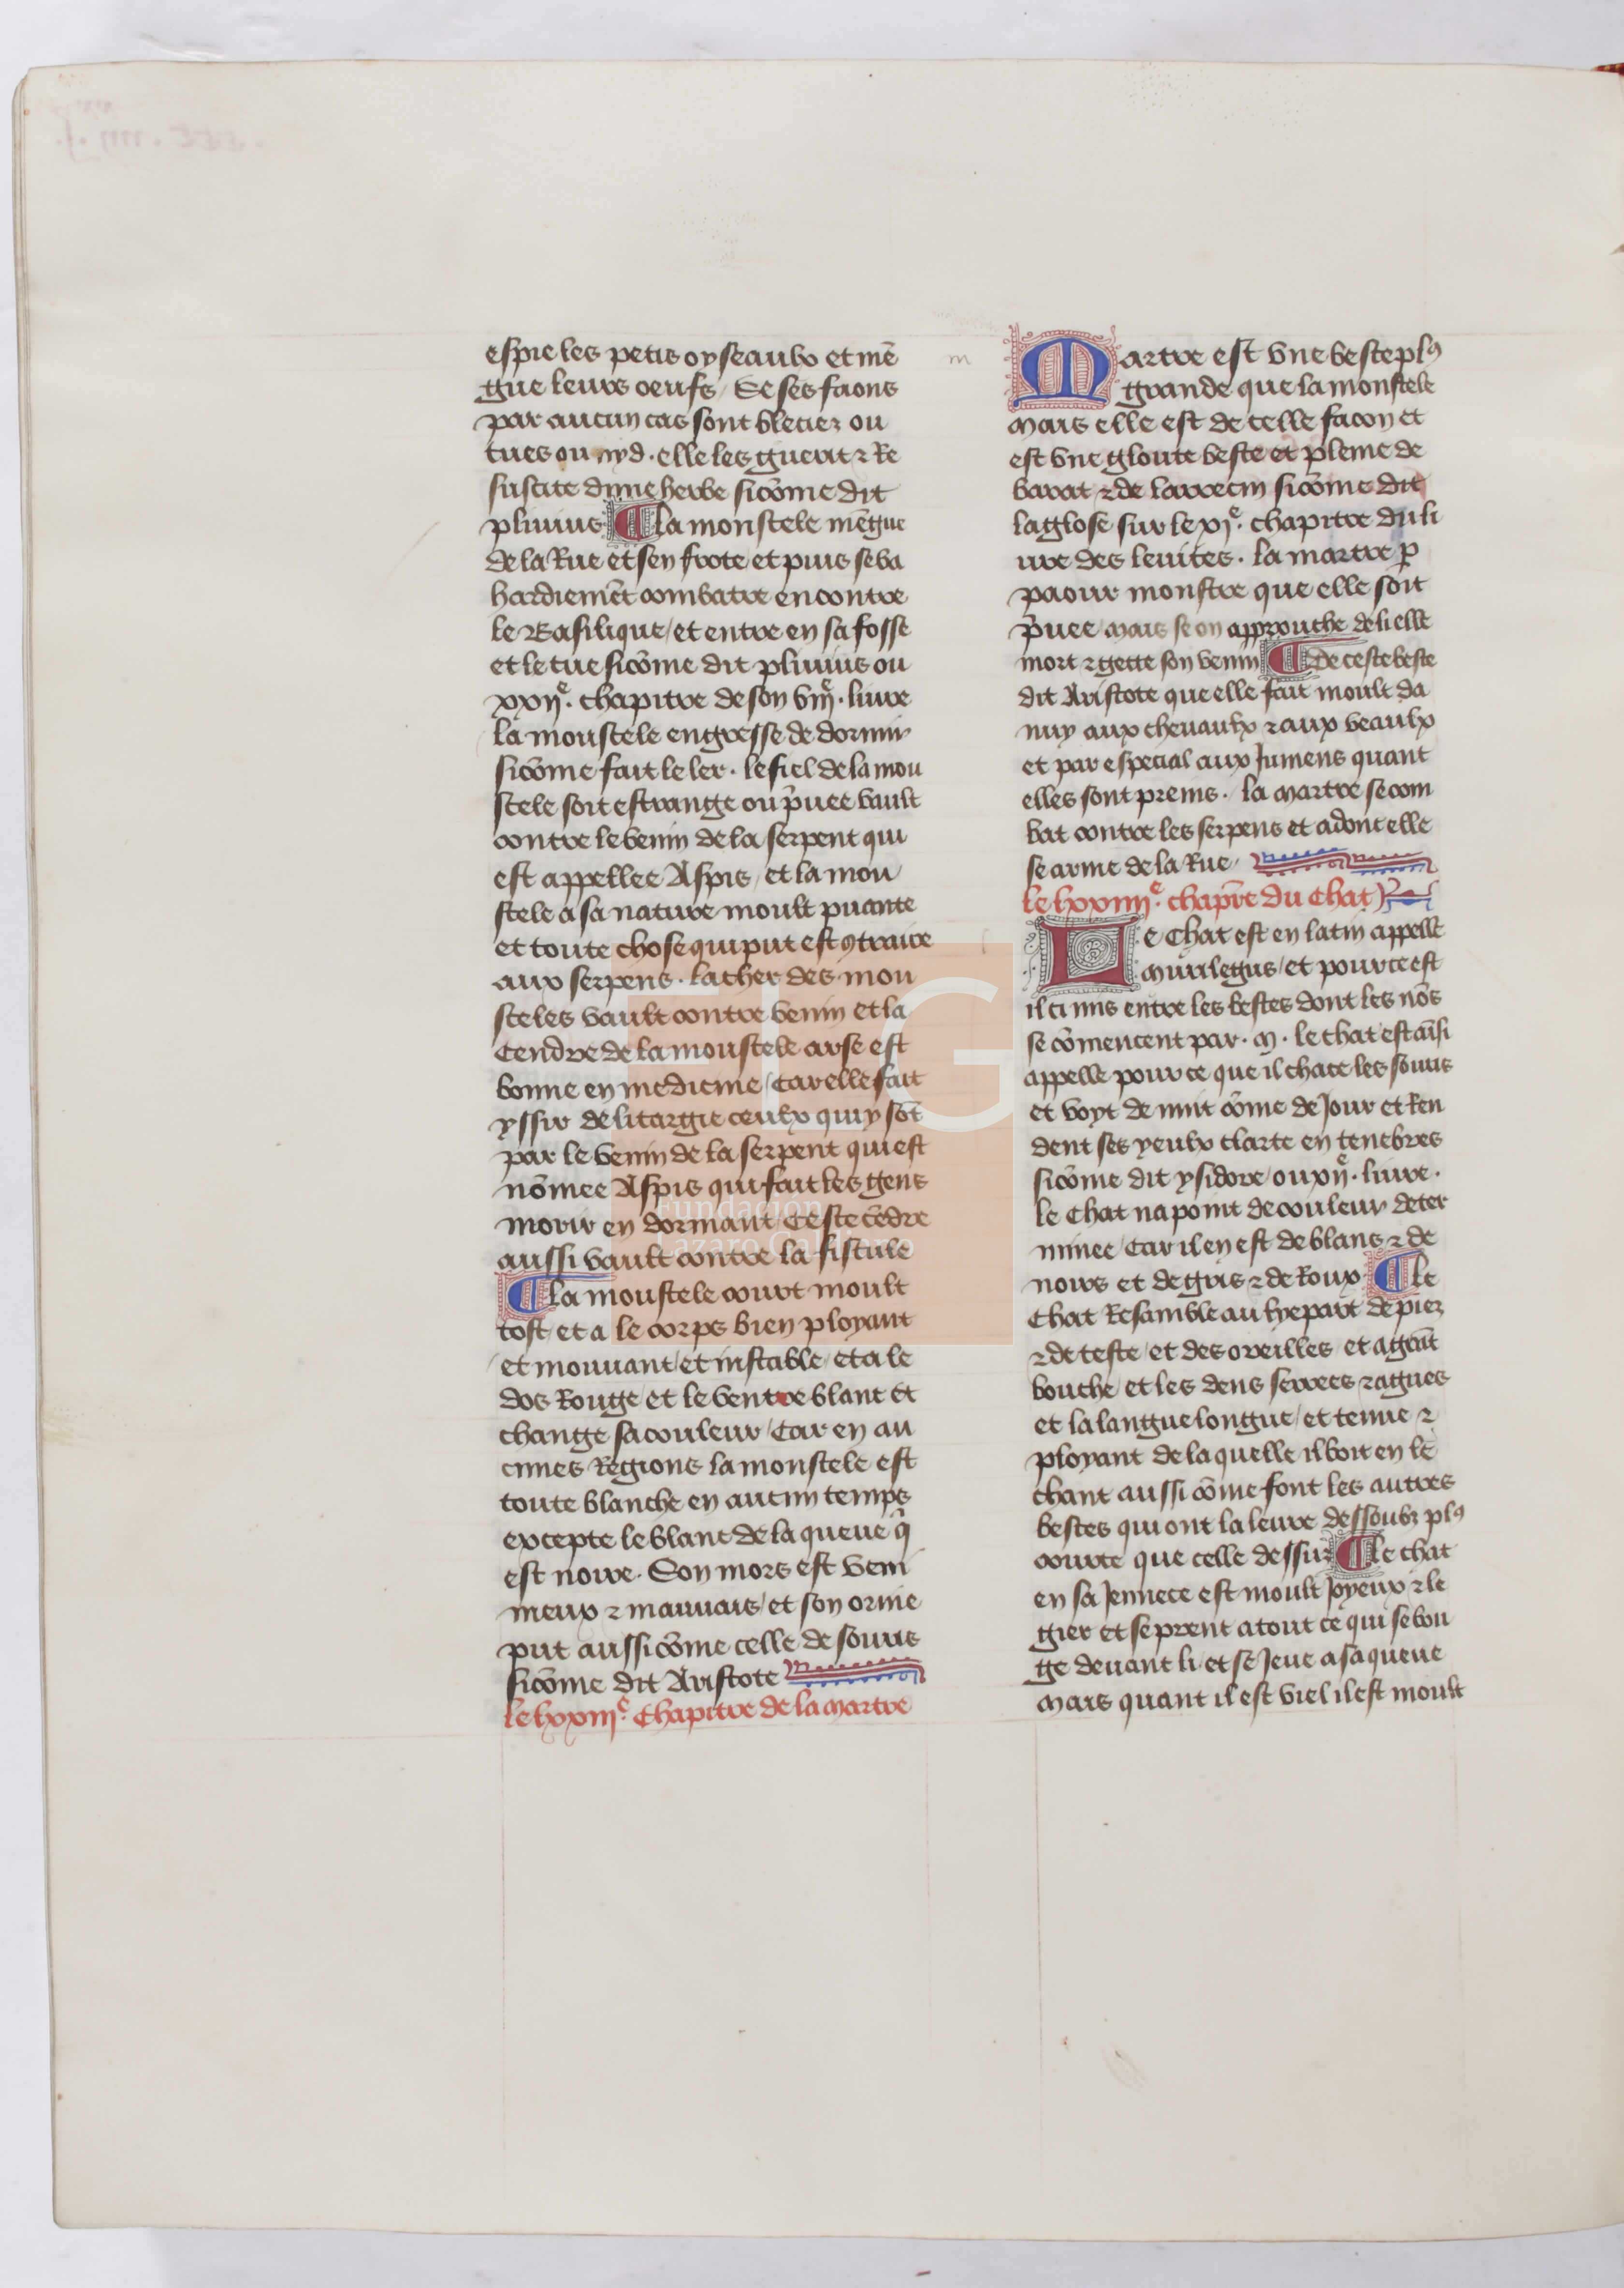 espie les petis oyseaulx et mē
gue leurs oeufs / Se ses faons
par aucun cas sont bleciez ou
tues ou nyd . elle les guerit ⁊ Re
suscite dune herbe sicōme dit
plinius ¶ la moustele mēgue
de la Rue et sen frote et puis se va
hardiemēt combatre encontre
le Basilique / et entre en sa fosse
et le tue sicōme dit plinius ou
xxijᵉ. chapitre de son viijᵉ. livre
la moustele engresse de dormir
sicōme fait le ler . le fiel de la mou
stele soit estrange ou p̄uee vault
contre le venin de la serpent qui
est appellee Aspis / et la mou
stele a sa nature moult puante
et toute chose qui put est ꝯtraire
aux serpens . la cher des mou
steles vault contre venin et la
Cendre de la moustele arse est
bonne en medicine / Car elle fait
yssir de litargie ceulx qui y sōt
par le venin de la serpent qui est
nōmee Aspis qui fait les gens
morir en dormant / Ceste cēdre
aussi vault contre la fistule
¶ la moustele court moult
tost / et a le corps bien ployant
et mouvant / et instable / et a le
dos Rouge / et le ventre blanc et
change sa couleur / Car en au
cunes Regions la moustele est
toute blanche en aucun temps
excepte le blanc de la queue q̄
est noire . Son mors est veni
meux ⁊ mauvais / et son orine
put aussi cōme celle de souris
sicōme dit Aristote
le lxxiijᵉ. Chapitre de la martre
m
Martre est vne beste plꝰ
grande que la moustele
mais elle est de telle facon et
est vne gloute beste et pleine de
barat ⁊ de larrecin sicōme dit
la glose sur le xjᵉ. chapitre du li
vre des levites . la martre p̲
paour monstre que elle soit
p̄uee / mais se on approuche de li elle
mort ⁊ gette son venin ¶ De ceste beste
dit Aristote que elle fait moult da
nuy aux chevaulx ⁊ aux veaulx
et par especial aux Jumens quant
elles sont preins . la martre se com
bat contre les serpens et adont elle
se arme de la Rue
le lxxiiijᵉ. chap̄re du Chat
Le Chat est en latin appelle
murilegus / et pource est
il ci mis entre les bestes dont les nōs
se cōmencent par . m . le chat est aīsi
appelle pour ce que il chace les souris
et voyt de nuit cōme de Jour et Ren
dent ses yeulx clarte en tenebres
sicōme dit ysidore ou xijᵉ. livre .
le Chat na point de couleur deter
minee / Car il en est de blans ⁊ de
noirs et de gris ⁊ de Roux ¶ le
Chat Resamble au lyepart de piez
⁊ de teste / et des oreilles / et a grāt
bouche / et les dens serrees ⁊ agues
et la langue longue / et tenue ⁊
ployant de la quelle il boit en le
chant aussi cōme font les autres
bestes qui ont la leure dessoubz plꝰ
courte que celle dessur ¶ le chat
en sa Jennece est moult joyeux ⁊ le
gier et se prent a tout ce qui se bou
ge devant li / et se Jeue a sa queue
mais quant il est viel il est moult
FLG
Fundación
Lázaro Galdiano